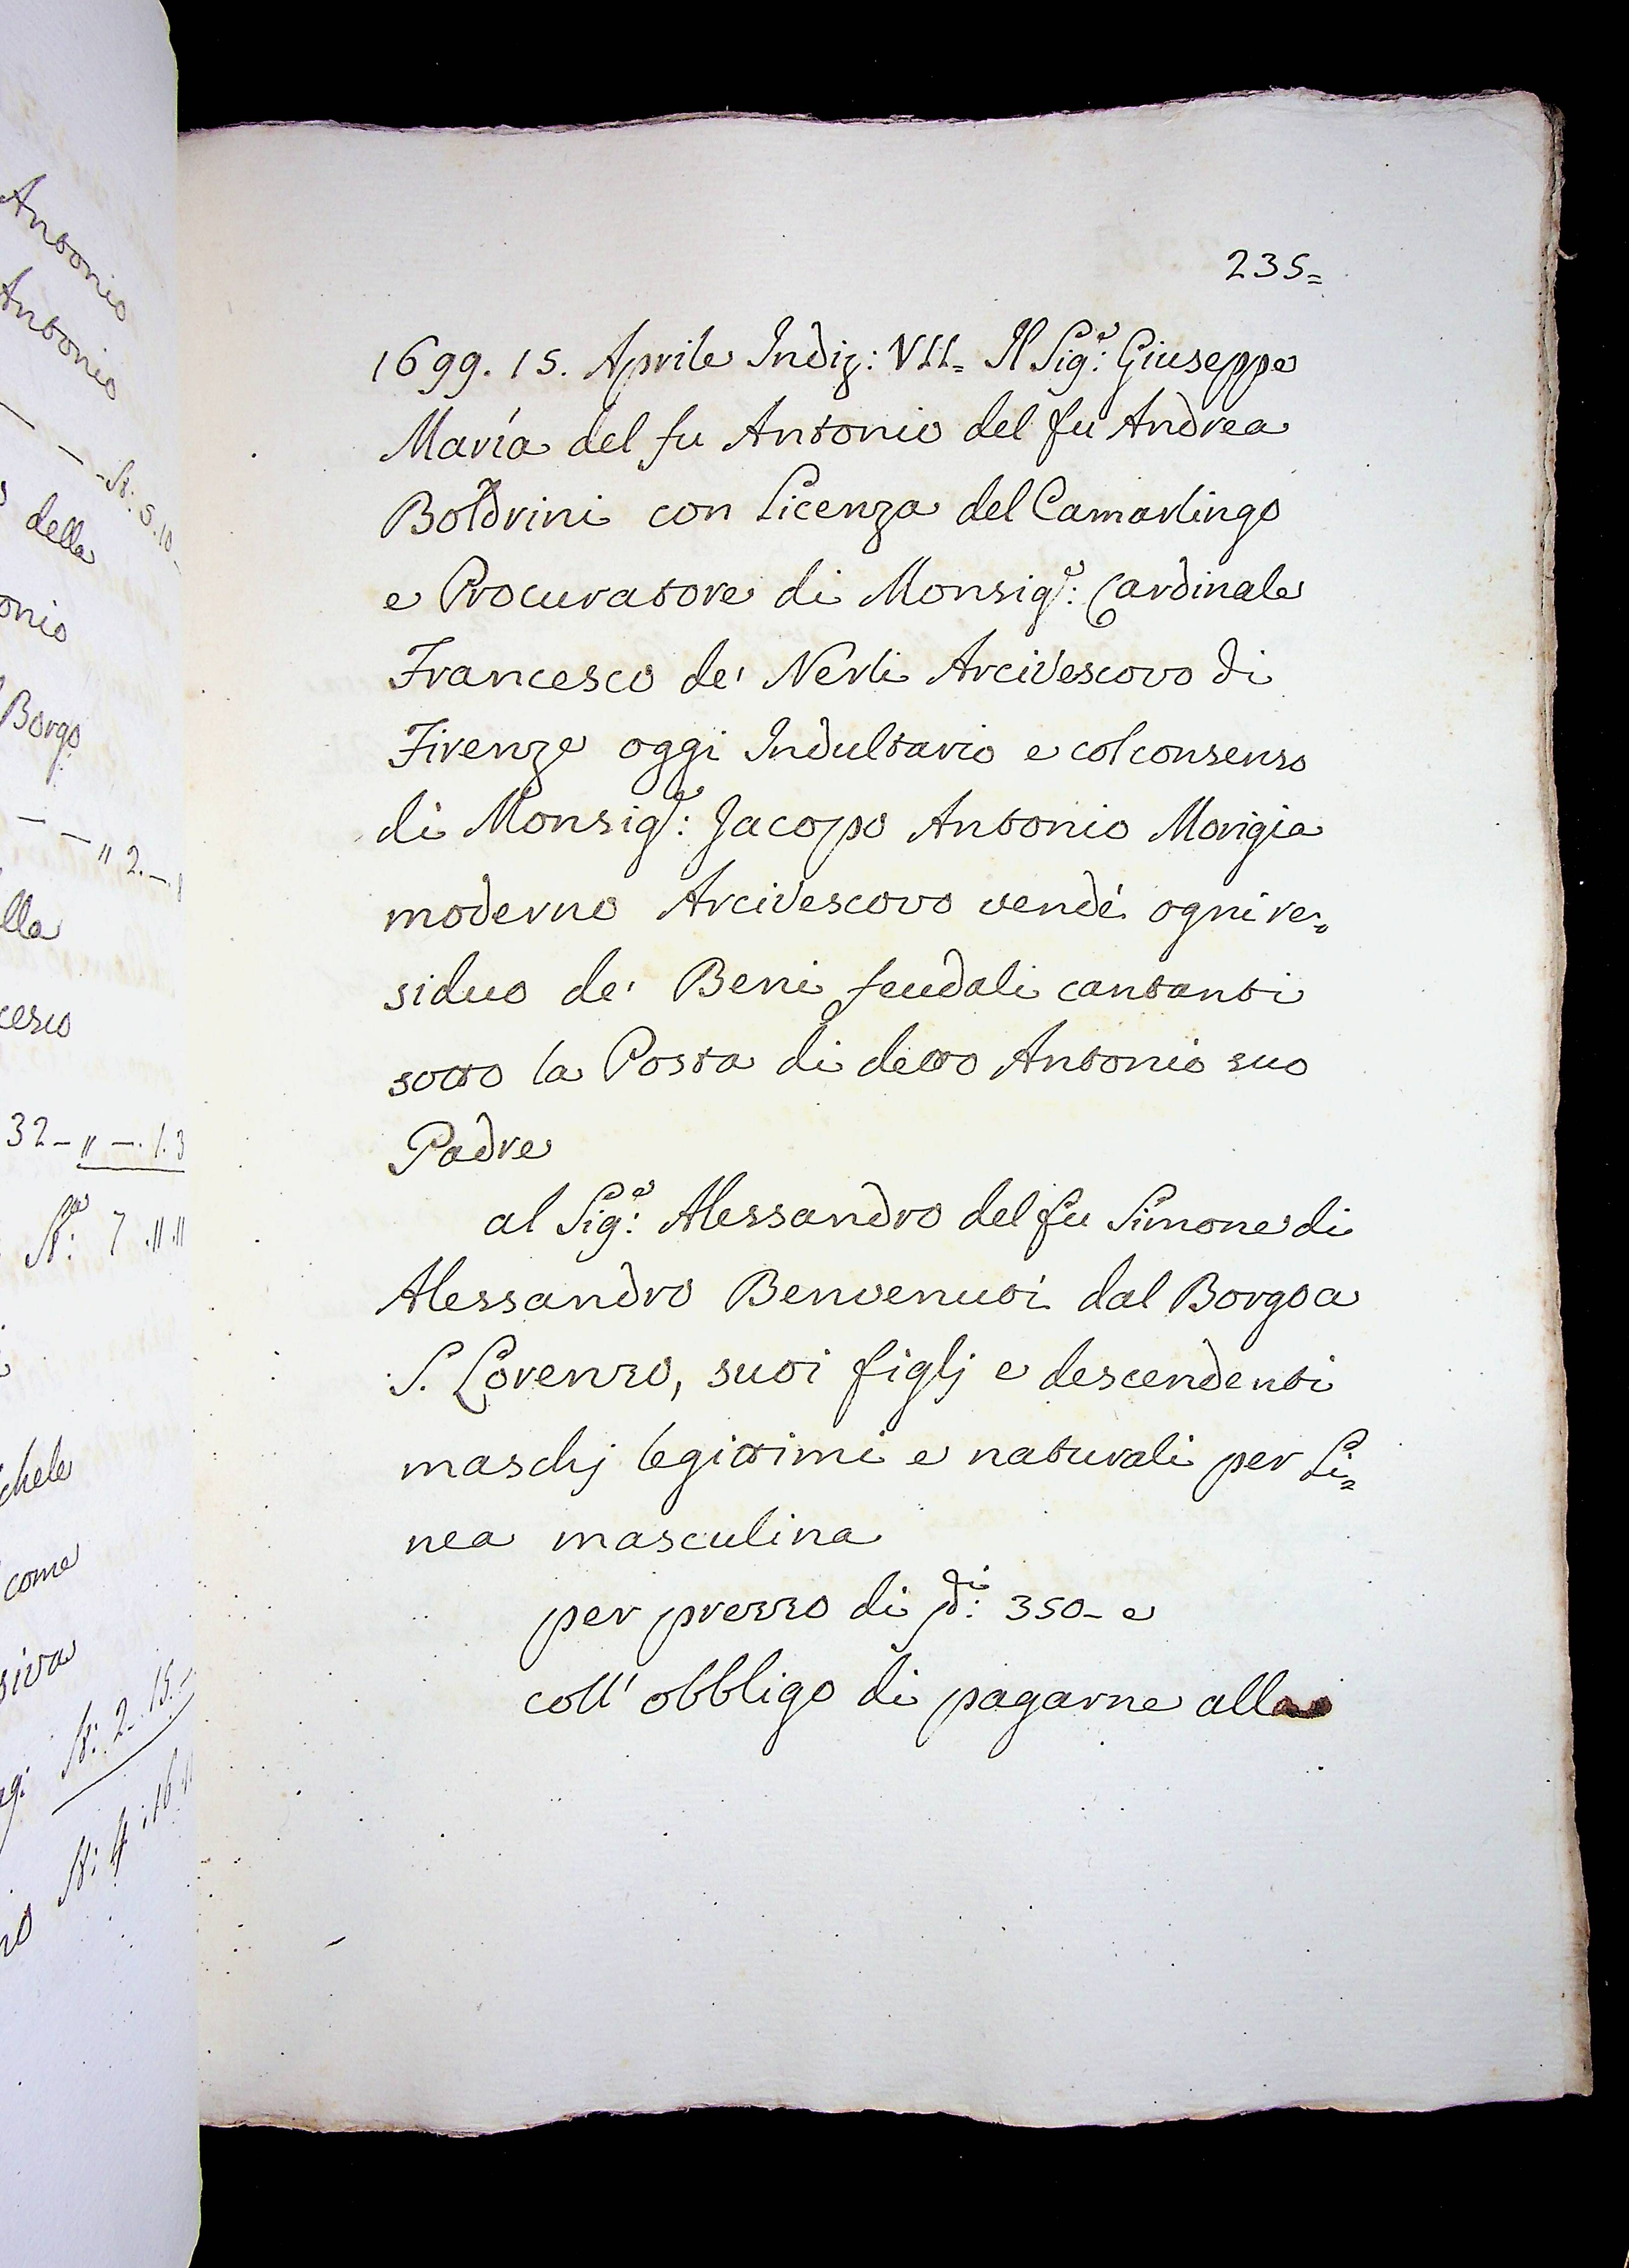 Antonio
Antonio
— — — S: 5.10
della
onio
Borgo
— — " 2.—.
lla
cesco
32 — " —. 1. 3
S: 7 ." ."
chele
come
siva
ag: S: 2.. 15.—
S: 4 .. 16
235=
1699. 15. Aprile Indiz: VII= Il Sig.e: Giuseppe
Maria del fu Antonio del fu Andrea
Boldrini con Licenza del Camarlingo
e Procuratore di Monsig.e: Cardinale
Francesco de' Nerli Arcivescovo di
Firenze oggi Indultario e col consenso
di Monsig.e: Jacopo Antonio Morigia
moderno Arcivescovo vendé ogni re=
siduo de' Beni feudali cantanti
sotto la Posta di detto Antonio suo
Padre
al Sig.e: Alessandro del fu Simone di
Alessandro Benvenuti dal Borgo a
S. Lorenzo, suoi figlj e descendenti
maschj legittimi e naturali per Li=
nea masculina
per prezzo di di: 350— e
coll' obbligo di pagarne alla